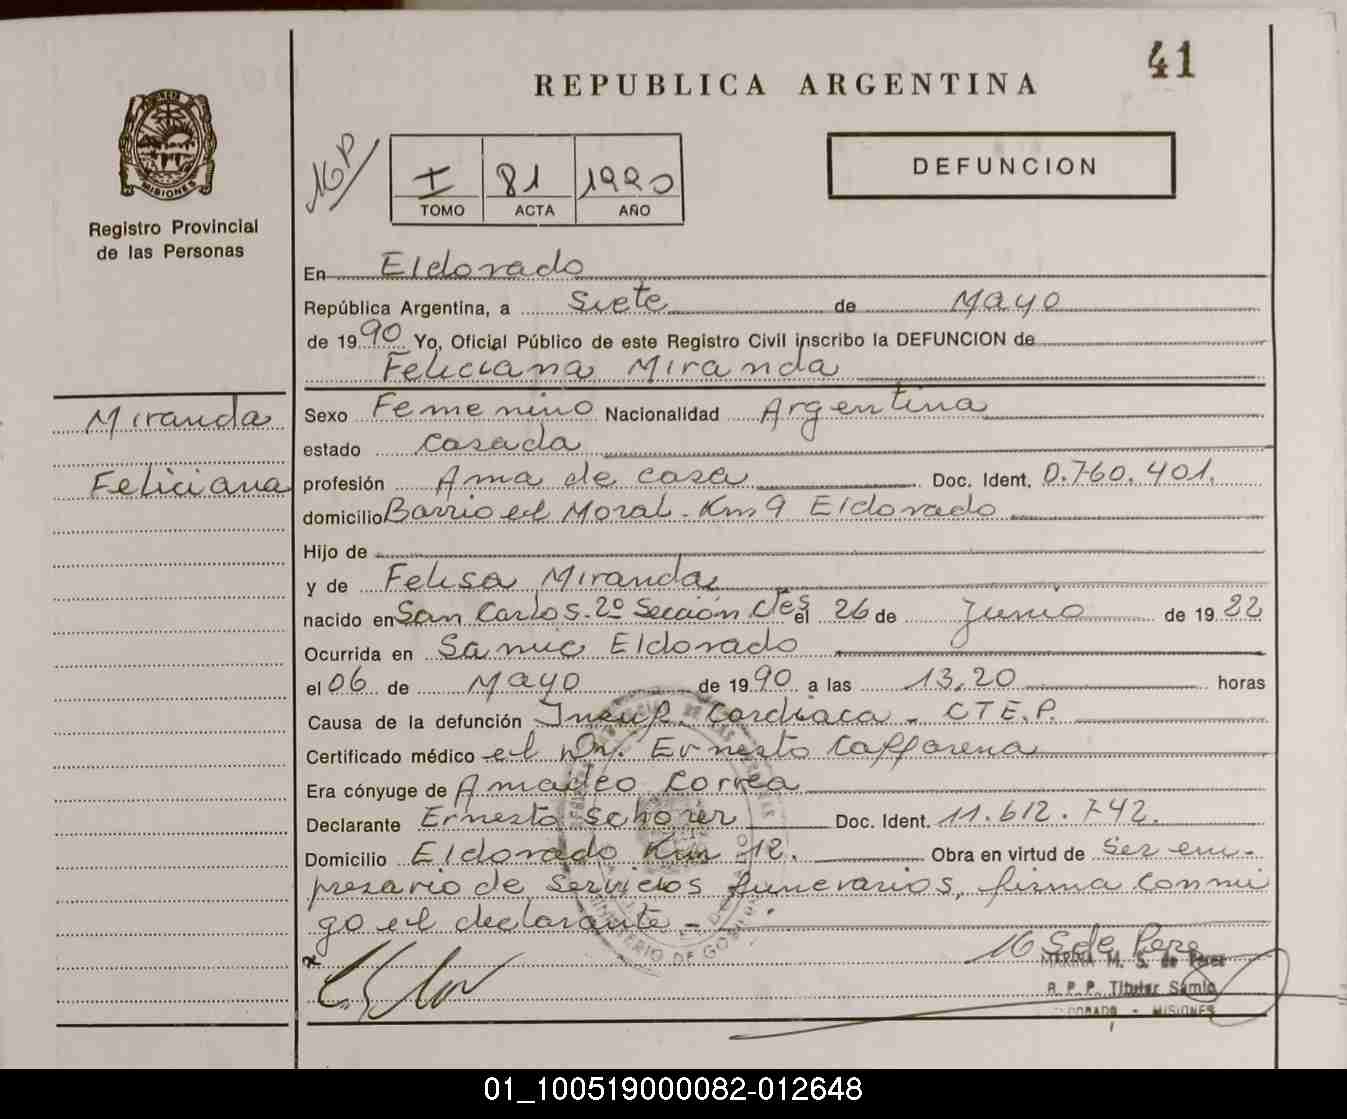 41
REPUBLICA ARGENTINA
MISIONES
Registro Provincial
de las Personas
I 81 1990
TOMO ACTA AÑO
DEFUNCION
En Eldorado
República Argentina, a Siete de Mayo
de 1990 Yo, Oficial Público de este Registro Civil inscribo la DEFUNCION de
Feliciana Miranda
Miranda
Feliciana
Sexo Femenino Nacionalidad Argentina
estado Casada
profesión Ama de casa Doc. Ident. 0.760.401.
domicilio Barrio el Moral. Km 9 Eldorado
Hijo de
y de Felisa Miranda
nacido en San Carlos. 2º Sección Ctes el 26 de Junio de 1922
Ocurrida en Samic Eldorado
el 06 de Mayo de 1990 a las 13,20 horas
Causa de la defunción Insuf. Cardiaca - CTE.P.
Certificado médico el Dr. Ernesto Caffarena
Era cónyuge de Amadeo Correa
Declarante Ernesto Schorer Doc. Ident. 11.612.742.
Domicilio Eldorado Km 12. Obra en virtud de Ser em-
presario de Servicios funerarios, firma conmi
go el declarante -
MARINA M. S. de Perez
R. P. P. Titular Samic
ELDORADO - MISIONES
01_100519000082-012648